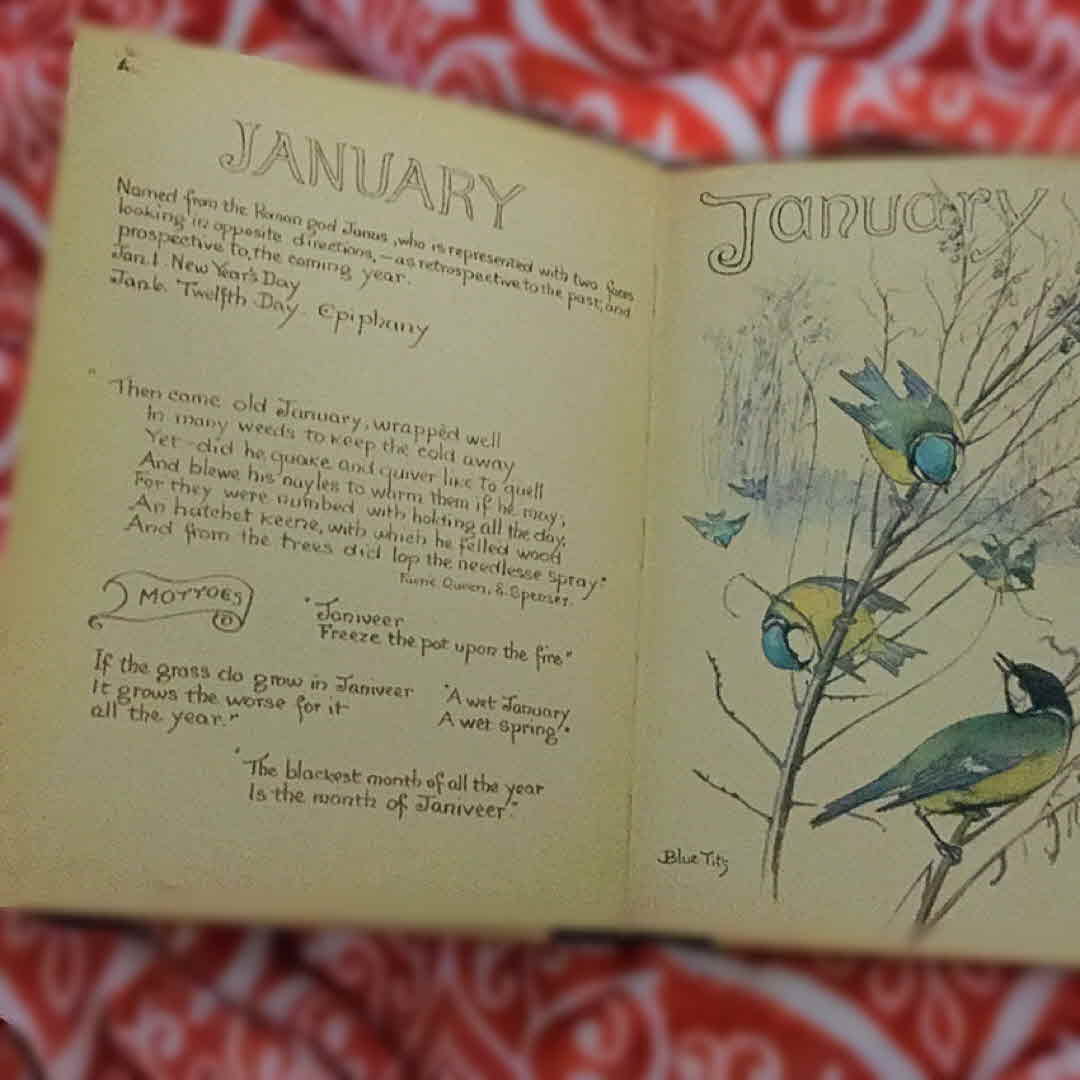 JANUARY
Named from the Roman god Janus, who is represented with two faces
looking in opposite directions, — as retrospective to the past, and
prospective to, the coming year.
Jan.1. New Year's Day
Jan.6. Twelfth Day. Epiphany
"Then came old January, wrappèd well
In many weeds to keep the cold away
Yet did he quake and quiver like to quell
And blewe his nayles to warm them if he may;
For they were numbed with holding all the day,
An hatchet keene, with which he felled wood
And from the trees did lop the needlesse spray."
Faerie Queen, E. Spenser.
MOTTOES
"Janiveer
Freeze the pot upon the fire"
If the grass do grow in Janiveer
It grows the worse for it
all the year."
"A wet January
A wet spring".
"The blackest month of all the year
Is the month of Janiveer".
January
Blue Tits